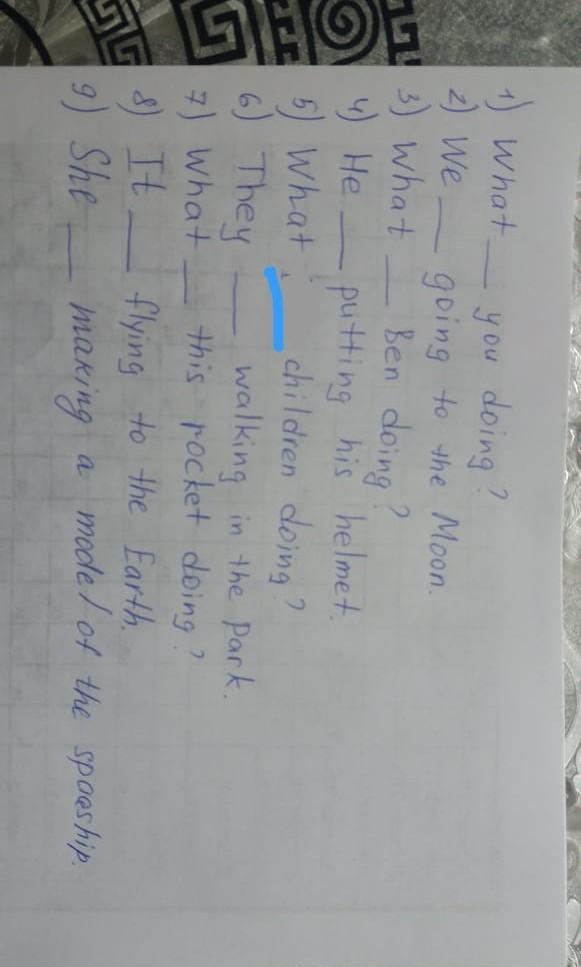 1) What __ you doing?
2) We __ going to the Moon.
3) What __ Ben doing?
4) He __ putting his helmet.
5) What __ children doing?
6) They __ walking in the park.
7) What __ this rocket doing?
8) It __ flying to the Earth.
9) She __ making a model of the spaeship.